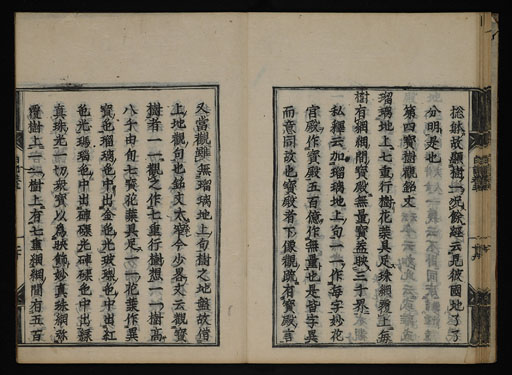 捴緑故顯樹一況餘經云見彼國地了了
分明是也
第四寶樹觀銘文
瑠璃地上七重行樹花葉具足珠網覆上每
樹有網網間寶殿無量寶蓋映三千界
私釋云加瑠璃地上句一一作每字妙花
宮殿作寶殿五百億作無量也是皆字異
而意同故也寶殿者下像觀疏有寶殿言
又當觀雖無瑠璃地上句樹之地盤故借
上地觀句也銘文太廣今少畧文云觀寶
樹者一一觀之作七重行樹想一一樹高
八千由旬七寶花葉具足一一花葉作異
寶色瑠璃色中出金色光玻瓈色中出紅
色光瑪瑙色中出硨磲光硨磲色中出綠
真珠光一切衆寶以爲映飾妙真珠網弥
覆樹上一一樹上有七重網網間有五百